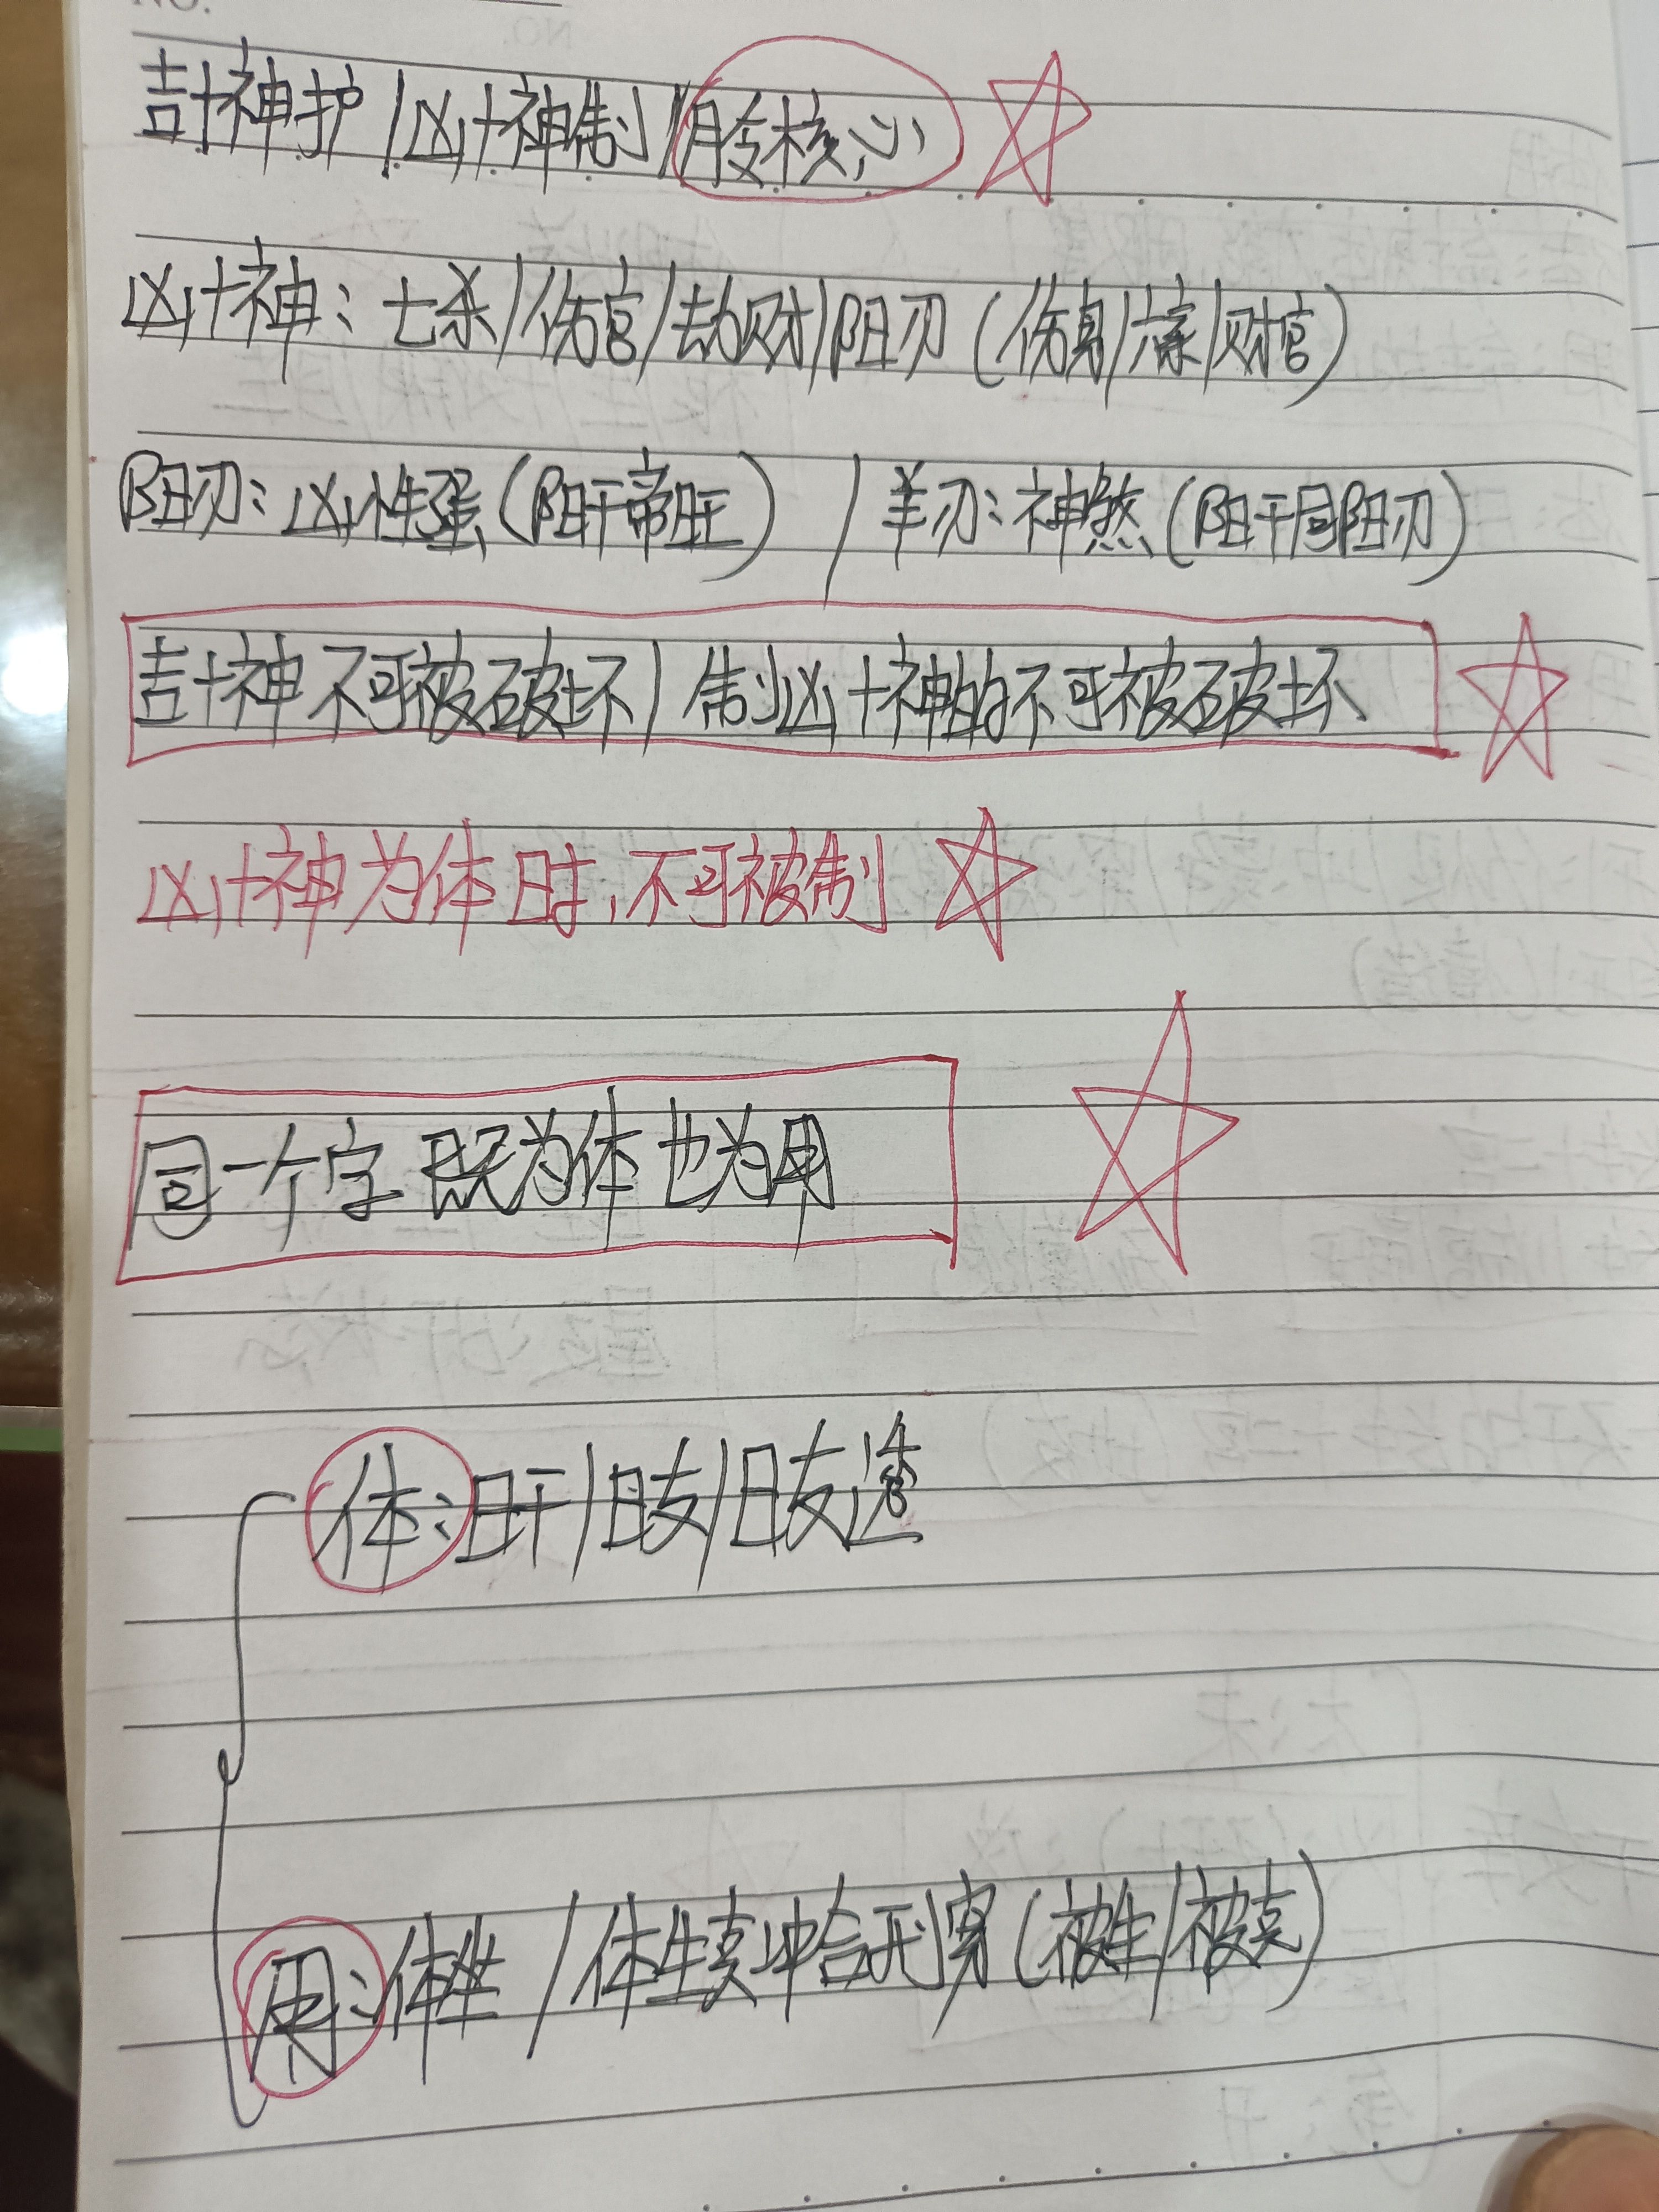 NO.
吉十神护/凶十神制/月令核心
凶十神：七杀/伤官/劫财/阳刃(伤身/六亲/财官)
阳刃：凶性强(阳干帝旺)/羊刃：神煞(阳干同阳刃)
吉十神不可被破坏/制凶十神的不可被破坏
凶十神为体时，不可被制
同一个字 既为体 也为用
体：日干/日支/日支透
用：体坐/体生克冲合刑穿(被生/被克)